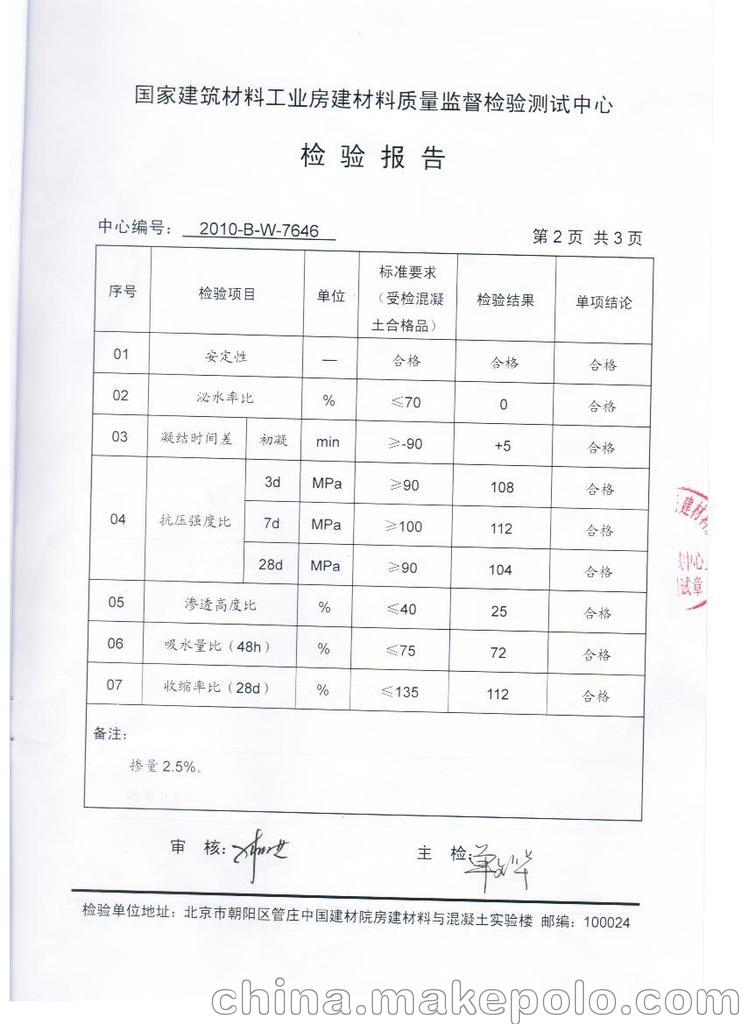 国家建筑材料工业房建材料质量监督检验测试中心
检 验 报 告
中心编号： 2010-B-W-7646
第 2 页 共 3 页
序号 检验项目 单位 标准要求（受检混凝土合格品） 检验结果 单项结论
01 安定性 — 合格 合格 合格
02 泌水率比 % ≤70 0 合格
03 凝结时间差 初凝 min ≥-90 +5 合格
04 抗压强度比 3d MPa ≥90 108 合格
7d MPa ≥100 112 合格
28d MPa ≥90 104 合格
05 渗透高度比 % ≤40 25 合格
06 吸水量比（48h） % ≤75 72 合格
07 收缩率比（28d） % ≤135 112 合格
备注：
掺量 2.5%。
审 核： 主 检：
检验单位地址：北京市朝阳区管庄中国建材院房建材料与混凝土实验楼 邮编：100024
建材
中心
试章
china.makepolo.com